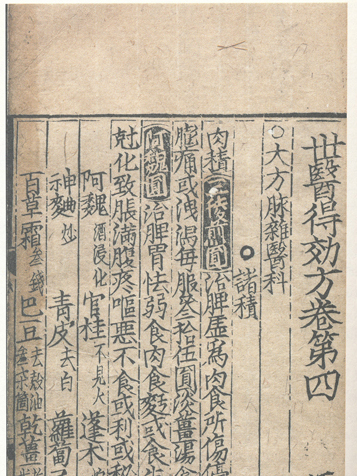 世醫得効方卷第四
○大方脉雜醫科
諸積
肉積 三棱煎圓 治脾虛為肉食所傷
腹痛或洩瀉每服叄拾伍圓淡薑湯
阿魏圓 治脾胃怯弱食肉食麪或食生
尅化致脹滿腹疼嘔惡不食或利或秘
阿魏酒浸化 官桂不見火 蓬朮
神麯炒 青皮去白 蘿蔔子
百草霜叁錢 巴豆去殼油 乾薑